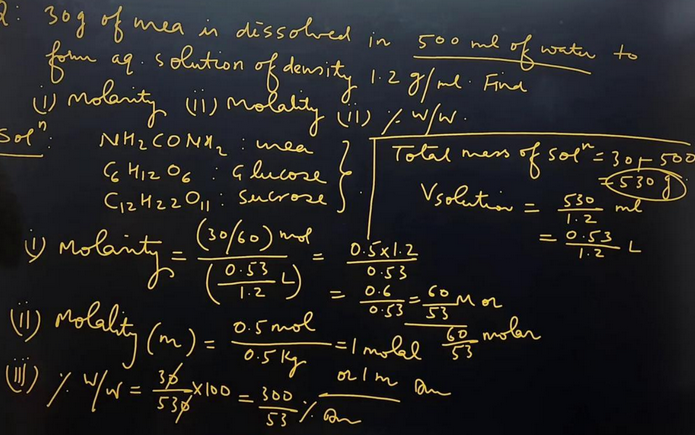 Q: 30g of urea is dissolved in 500 ml of water to
form aq. solution of density 1.2 g/ml. Find
(i) Molarity (ii) Molality (ii) % w/w.
Solⁿ: NH2CONH2 : urea
C6H12O6 : Glucose
C12H22O11 : Sucrose
Total mass of solⁿ = 30+500
= 530 g
Vsolution = 530/1.2 ml
= 0.53/1.2 L
i) Molarity = (30/60) mol / (0.53/1.2 L) = 0.5x1.2/0.53
= 0.6/0.53 = 60/53 M or
60/53 molar
(ii) Molality (m) = 0.5 mol / 0.5 kg = 1 molal
or 1 m Am
(iii) % w/w = 30/530 x100 = 300/53 % Am